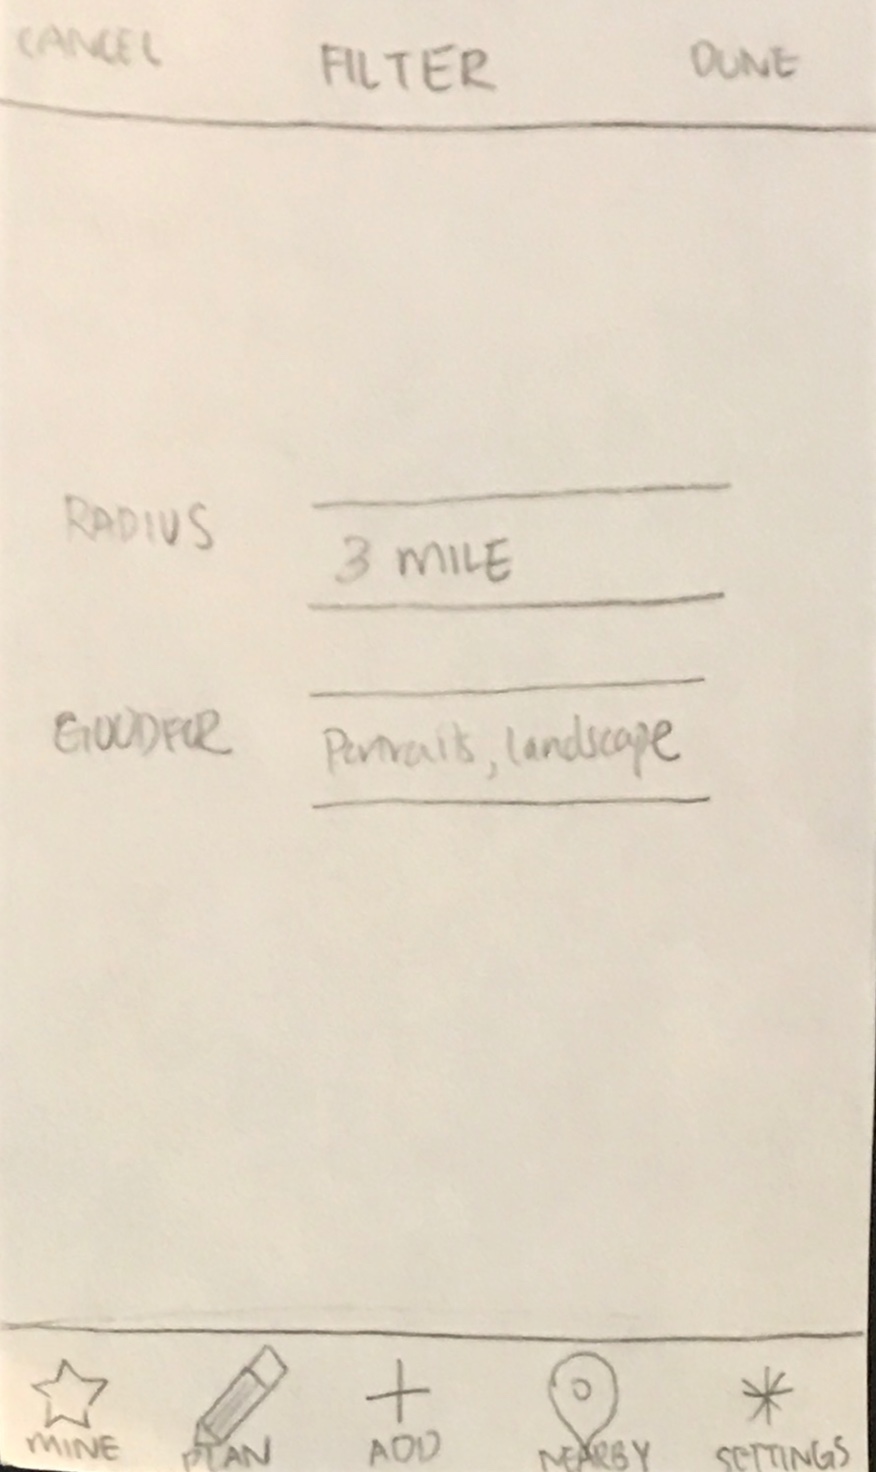 CANCEL FILTER DONE
RADIUS 3 MILE
GOODFOR Portraits, landscape
MINE PLAN ADD NEARBY SETTINGS